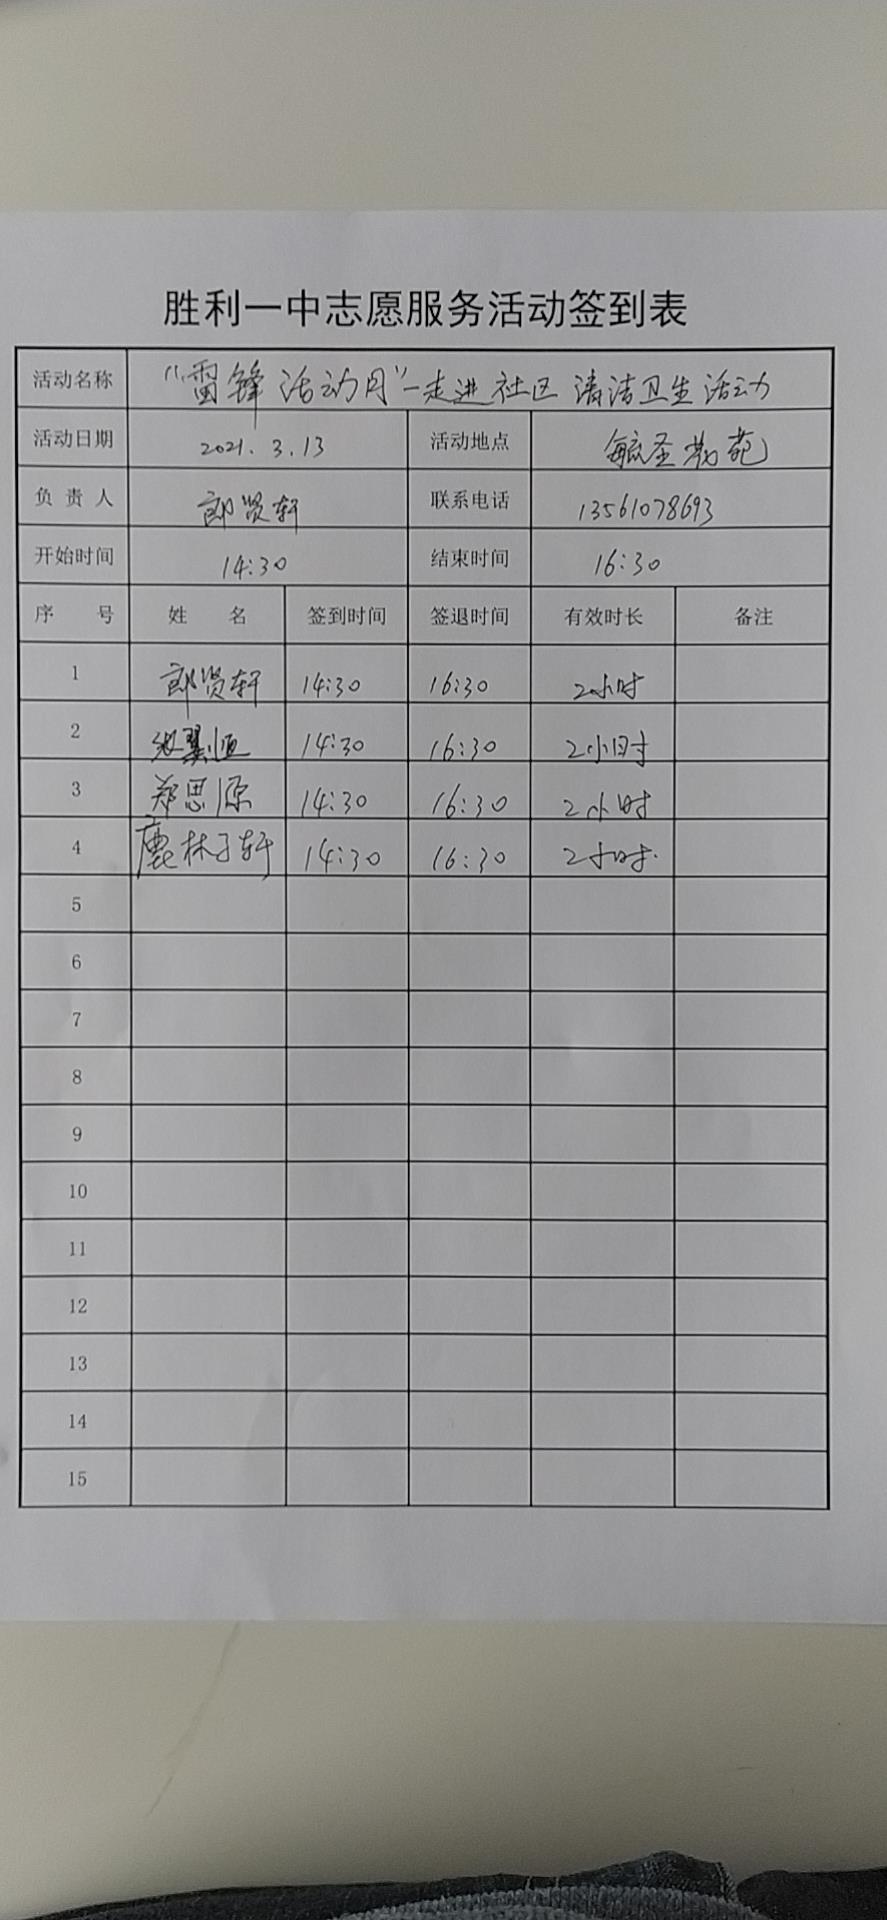 胜利一中志愿服务活动签到表
活动名称 "雷锋活动月"—走进社区 清洁卫生活动
活动日期 2021.3.13 活动地点 毓圣苑
负责人 郎贤轩 联系电话 13561078693
开始时间 14:30 结束时间 16:30
序 号 姓 名 签到时间 签退时间 有效时长 备注
1 郎贤轩 14:30 16:30 2小时
2 张翼恒 14:30 16:30 2小时
3 郑思源 14:30 16:30 2小时
4 鹿林子轩 14:30 16:30 2小时.
5
6
7
8
9
10
11
12
13
14
15